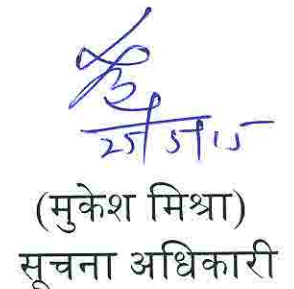 25/5/15
(मुकेश मिश्रा)
सूचना अधिकारी